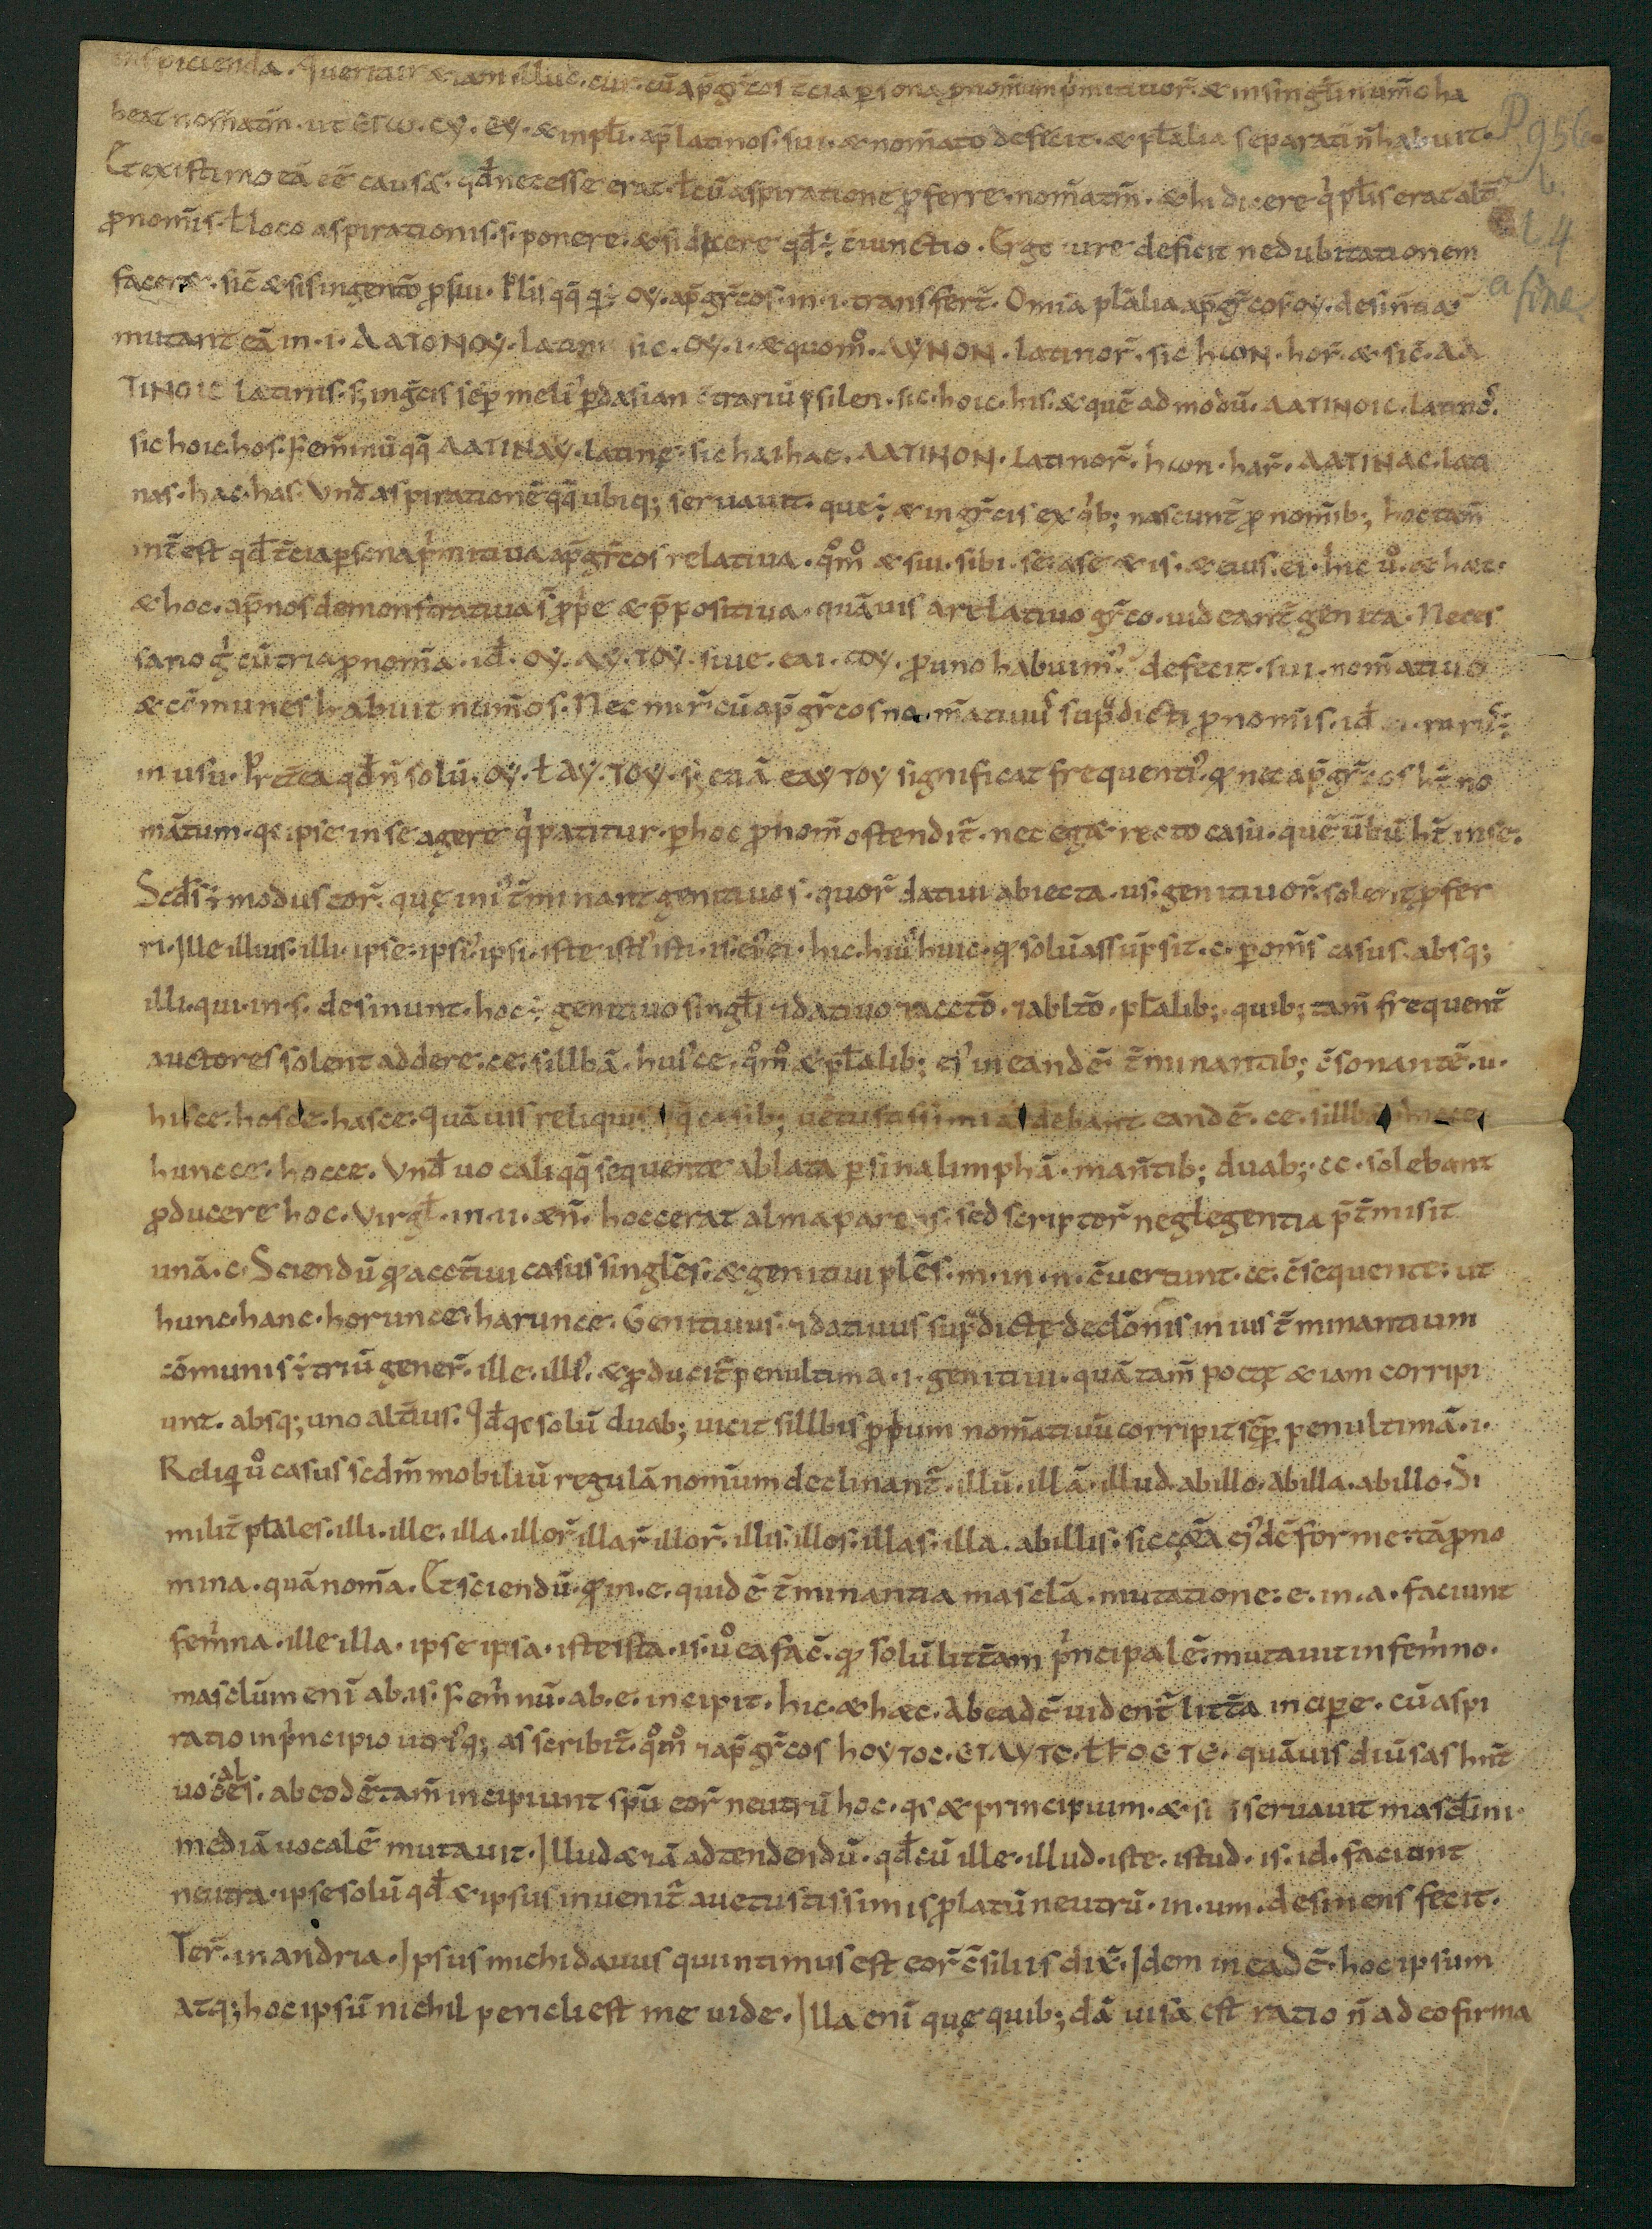 inspicienda. Queritur & iam illud. cur. cū ap̄ gr̄cos t̄cia persona pronominum p'mitiuor̄. & in singłi num̄o ha
beat nom̄atm̄. ut ΕΓω. CY. EY. & in płi. ap̄ latinos. sui. & nom̄ato defecit. & płalia separati n̄ habuit.
Et existimo eā ēē causā. qd̄ necesse erat. ł cū aspiratione proferre. nom̄atm̄. & hi dicere q'płis erat alt̄i
pronom̄is. ł loco aspirationis. s. ponere. & si dicere qd̄ ÷ c̄iunctio. Ergo iure deficit ne dubitationem
faceret. sic̄ & si singent̄o pro sui. Płis qq̄ q' ÷ OY. ap̄ gr̄cos. in. i. transfert̄. Om̄ia płalia ap̄ gr̄cor̄ oy. desin̄tia
mutant eā in. i. ΛΑΤΟΝΟΥ. latini sic. OY. i. & quom̊. ΛΥΝΟΝ. latinor̄. sic hωN. hor̄. & sic̄. ΛΑ
ΤΙΝΟΙC latinis. s; in gr̄cis sēp meli' p̄ dasian c̄trariū psilen. sic. hoic. his. & quē ad modū. ΛΑΤΙΝΟΙC. latinos.
sic hoic. hos. Fem̄inū qq̄ ΛΑΤΙΝΑΥ. latinę. sic hai hae. ΛΑΤΙΝΟΝ. latinor̄. hωn. har̄. ΛΑΤΙΝΑC. lati
nas. hac. has. Vnd̄ aspirationē qq̄ ubiq; seruauit. que ÷ & in gr̄cis ex q'b; nascunt̄ pro nom̄ib; hoc tam̄
int̄ est qd̄ t̄cia persona p'mitiua ap̄ gr̄cos relatiua. q̊m̊ & sui. sibi. se. a se & is. & eius. ei. hic ů. & haec.
& hoc. ap̄ nos demonstratiua s̄ prop̄e & p̄positiua. quāuis a relatiuo gr̄co. uideant̄ genita. Neces
sario g' cū tria pronom̄a. id̄. OY. ΑΥ. ΤΟΥ. siue. eai. TOY. pro uno habuim'. defecit. sui. nom̄atiuo
& com̄unes habuit num̄os. Nec mir̄ cū ap̄ gr̄cos no m̄atiuus sup̄dicti pronom̄is. id̄ rarus ÷
in usu. Pret̄ea qd̄ n̄ solū. OY. ł ΑΥ. ΤΟΥ. s; etiā eay TOY significat frequenti'. q nec ap̄ gr̄cos ht̄ no
m̄atum. q ipse in se agere q'patitur. per hoc pronom̄ ostendit̄. nec eget recto casu. quē ūbū ht̄ in se.
Scd̄s ÷ modus eor̄. quę in i' t̄minant genitiuos. quor̄ datiui abiecta. us. genitiuor̄. solent profer
ri. Ille illius. illi. ipse. ipsi'. ipsi. iste isti' isti. is. ei' ei. hic. hui' huic. q solū assūpsit. c. per om̄s casus. absq;
illi. qui. in. s. desinunt. hoc ÷ genitiuo singłi 7 datiuo 7 acct̄o. 7 ablt̄o. płalib;. quib; tam̄ frequent̄
auctores solent addere. ce. sillbā. hui'ce. q̊m̊ & płalib; ei' in eandē t̄minantib; c̄sonantē. u.
hisce. hosce. hasce. quāuis reliquis qq̄ casib; uetustissimi addebant eandē. ce. sillbā hicce
huncce. hocce. Vnd̄ uocali qq̄ sequente ablata per sinalimphā. man̄tib; duab; cc. solebant
producere hoc. Virgł. in. ii. æn̄. hoccerat alma parens. sed scriptor̄ neglegentia p̄t̄misit
unā. c. Sciendū q accut̄ui casus singlēs. & genitiui plēs. m. in. n. c̄uertunt. ce. c̄sequente. ut
hunc. hanc. horunce. harunce. Genitiuus. 7 datiuus sup̄dictę declōnis in ius t̄minantium
com̄unis ÷ triū gener̄. ille. illi'. & producit̄ penultima. i. genitiui. quā tam̄ poetę & iam corripi
unt. absq; uno alt̄ius. Id̄ q solū duab; uicit sillbis proprium nom̄atiuū corripit sēp penultimā. i.
Reliqui ů casus scdm̄ mobiliū regulā nom̄um declinant̄. illū. illā. illud. ab illo. ab illa. ab illo. Si
milit̄ płales. illi. ille. illa. illor̄ illar̄ illor̄. illis. illos. illas. illa. ab illis. sic c&a ei' dē forme. tā prono
mina. quā nom̄a. Et sciendū. q in. e. quidē t̄minantia masclā. mutatione. e. in. a. faciunt
fem'na. ille illa. ipse ipsa. iste ista. is. ů ea fac̄. q solū litt̄am p'ncipalē. mutauit in fem'no.
masclūm enī ab. is. Fem'nū. ab. e. incipit. hic. & haec. Ab eadē uident̄ litt̄a incipe. cū aspi
ratio in p'ncipio utri'q; asscribit̄. q̊m̊ 7 ap̄ gr̄cos hoyToC. ΕΤΑΥΤΕ. ŁŁΟΕΤΕ. quāuis diūsas hn̄t
uocales. ab eodē. tam̄ incipiunt spū eor̄ neutrū hoc. q & principium. & si seruauit masclini.
mediā uocalē mutauit. Illud & iā adtendendū. qd̄ cū ille. illud. iste. istud. is. id. faciunt
neutra. ipse solū qd̄ & ipsus inuenit̄ a uetustissimis prolatū neutrū. in. um. desinens fecit.
Ter̄. in andria. Ipsus michi dauus qui intimus est eor̄ c̄siliis dix̄. Idem in eadē. hoc ipsum
atq; hoc ipsū nichil pericli est me uide. Illa enī quę quib;dā uisa est ratio n̄ adeo firma
P. 956.
b.
l. 4
a fine